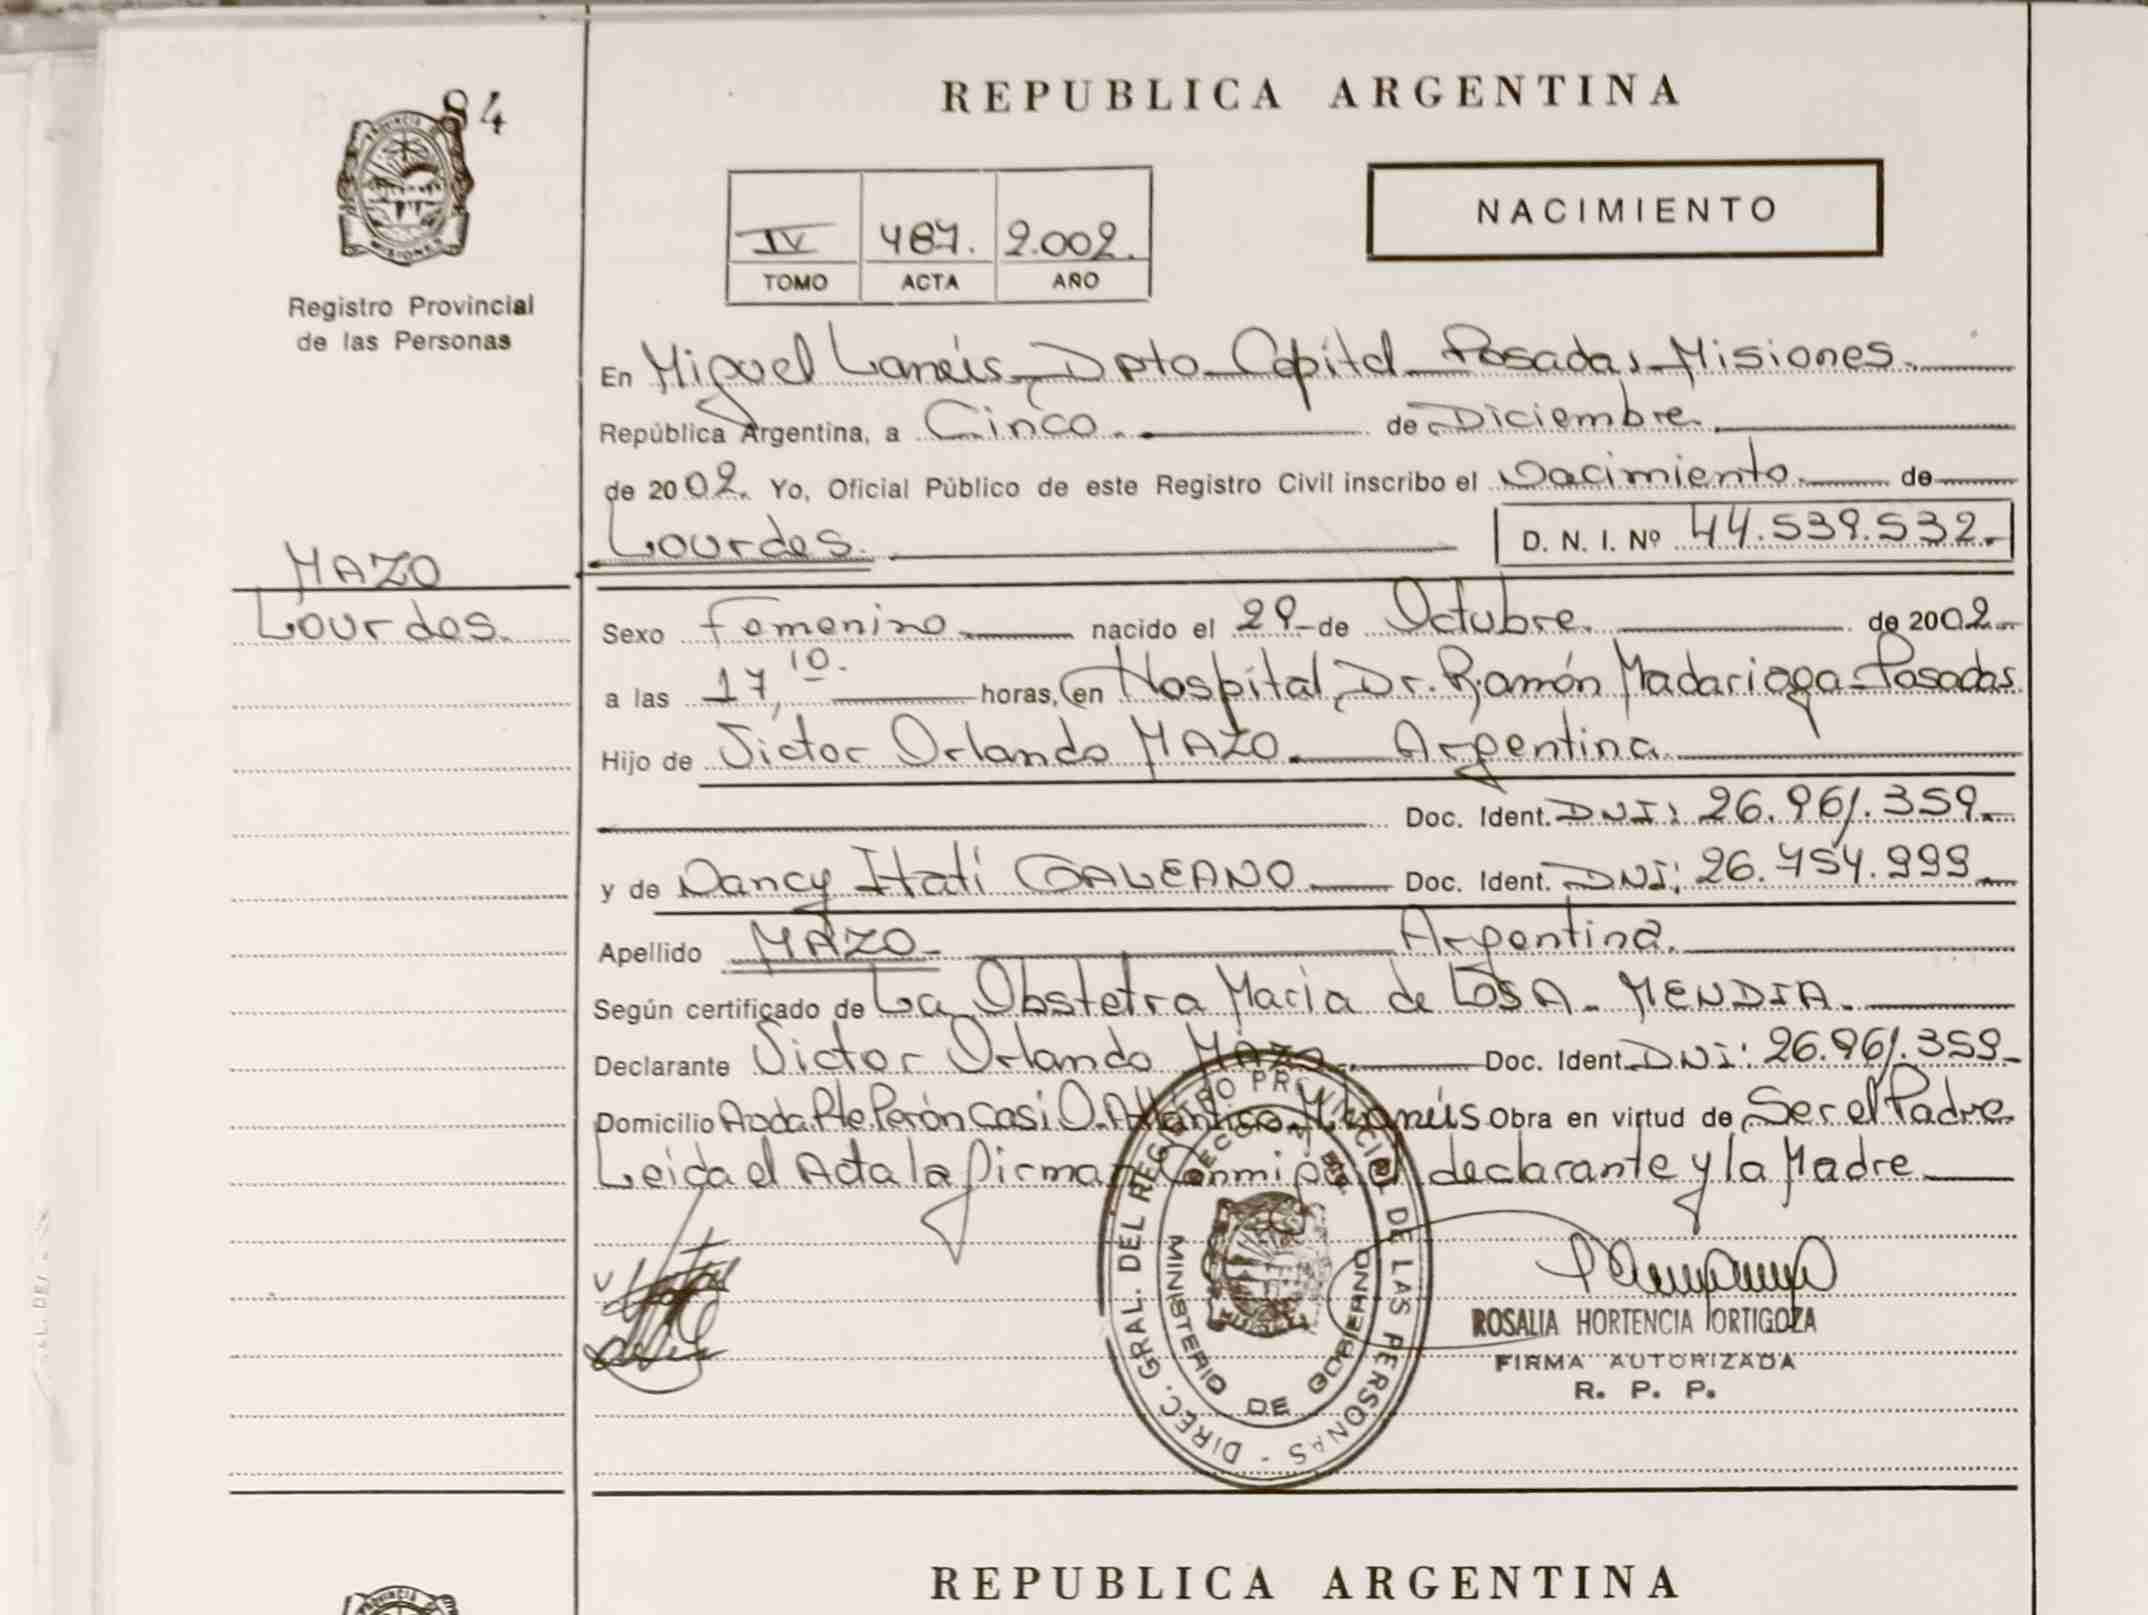 84
PROVINCIA DE
MISIONES
Registro Provincial
de las Personas
MAZO
Lourdes.
REPUBLICA ARGENTINA
NACIMIENTO
IV 487. 2.002.
TOMO ACTA AÑO
En Miguel Lanús, Dpto Capital Posadas, Misiones.
República Argentina, a Cinco. de Diciembre.
de 2002. Yo, Oficial Público de este Registro Civil inscribo el Nacimiento de
Lourdes. D. N. I. Nº 44.539.532.
Sexo Femenino nacido el 29 de Octubre. de 2002
a las 17,10. horas, en Hospital, Dr. Ramón Madariaga Posadas
Hijo de Victor Orlando MAZO. Argentina.
Doc. Ident. DNI: 26.961.359.
y de Nancy Itati GALEANO Doc. Ident. DNI: 26.454.999.
Apellido MAZO Argentina.
Según certificado de La Obstetra Maria de Los A. MENDIA.
Declarante Victor Orlando Mazo. Doc. Ident. DNI: 26.961.359
Domicilio Avda. Pte Perón Casi O. Atlántico M. Lanús Obra en virtud de Ser el Padre
Leida el Acta la firman Conmigo el declarante y la Madre
DIREC. GRAL. DEL REGISTRO PROVINCIAL DE LAS PERSONAS -
MINISTERIO DE GOBIERNO
ROSALIA HORTENCIA ORTIGOZA
FIRMA AUTORIZADA
R. P. P.
REPUBLICA ARGENTINA